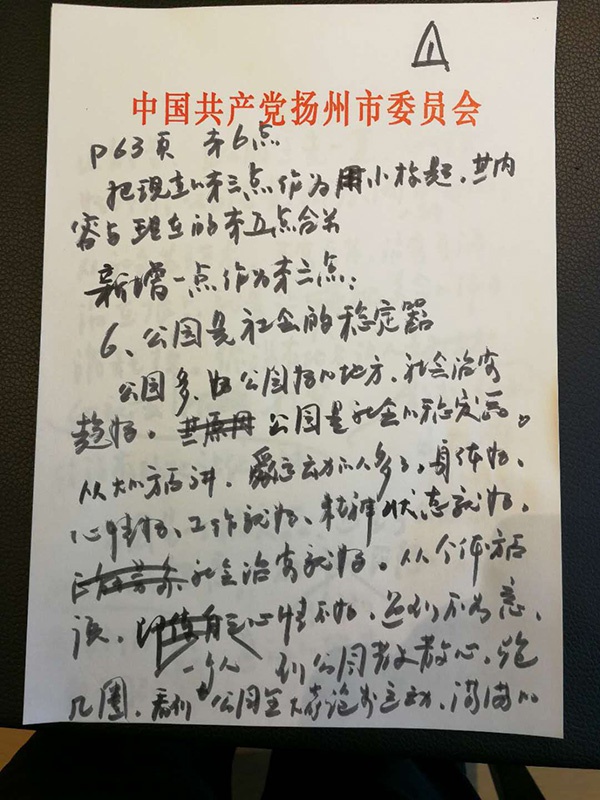 1
中国共产党扬州市委员会
P63页 第6点
把现在的第三点作为小标题,其内
容与现在的第五点合并
新增一点作为第三点:
6、公园是社会的稳定器
公园多、好公园好的地方,社会治安
越好。公园是社会的稳定器。
从大的方面讲,爱运动的人多了,身体好、
心情好、工作就好、精神状态就好,
社会治安就好。从个体方面
讲,一个人心情不好,遇到不如意,
到公园散散心,跑
几圈,看到公园里大家运动,满满的